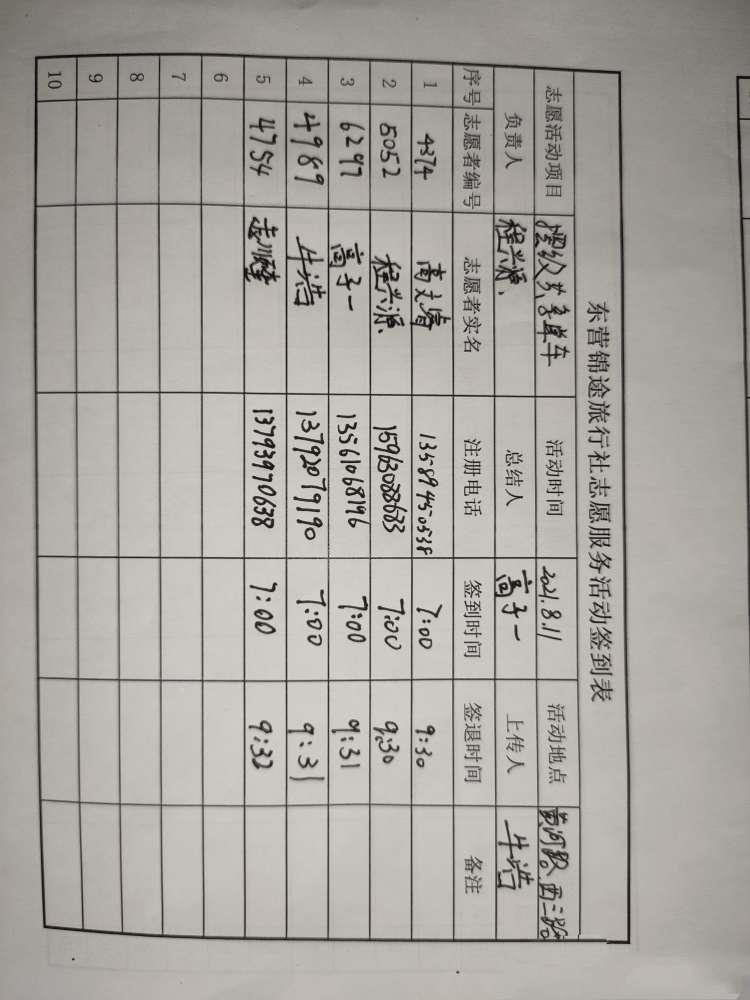 东营锦途旅行社志愿服务活动签到表
志愿活动项目 摆放共享单车 活动时间 2021.8.11 活动地点 黄河路西二路
负责人 程兴源 总结人 高子一 上传人 牛浩
序号 志愿者编号 志愿者实名 注册电话 签到时间 签退时间 备注
1 4374 高 13589450538 7:00 9:30
2 5052 程兴源 15963028633 7:00 9:30
3 6297 高子一 13561068196 7:00 9:31
4 4989 牛浩 13792079190 7:00 9:31
5 4754 13793970638 7:00 9:32
6
7
8
9
10